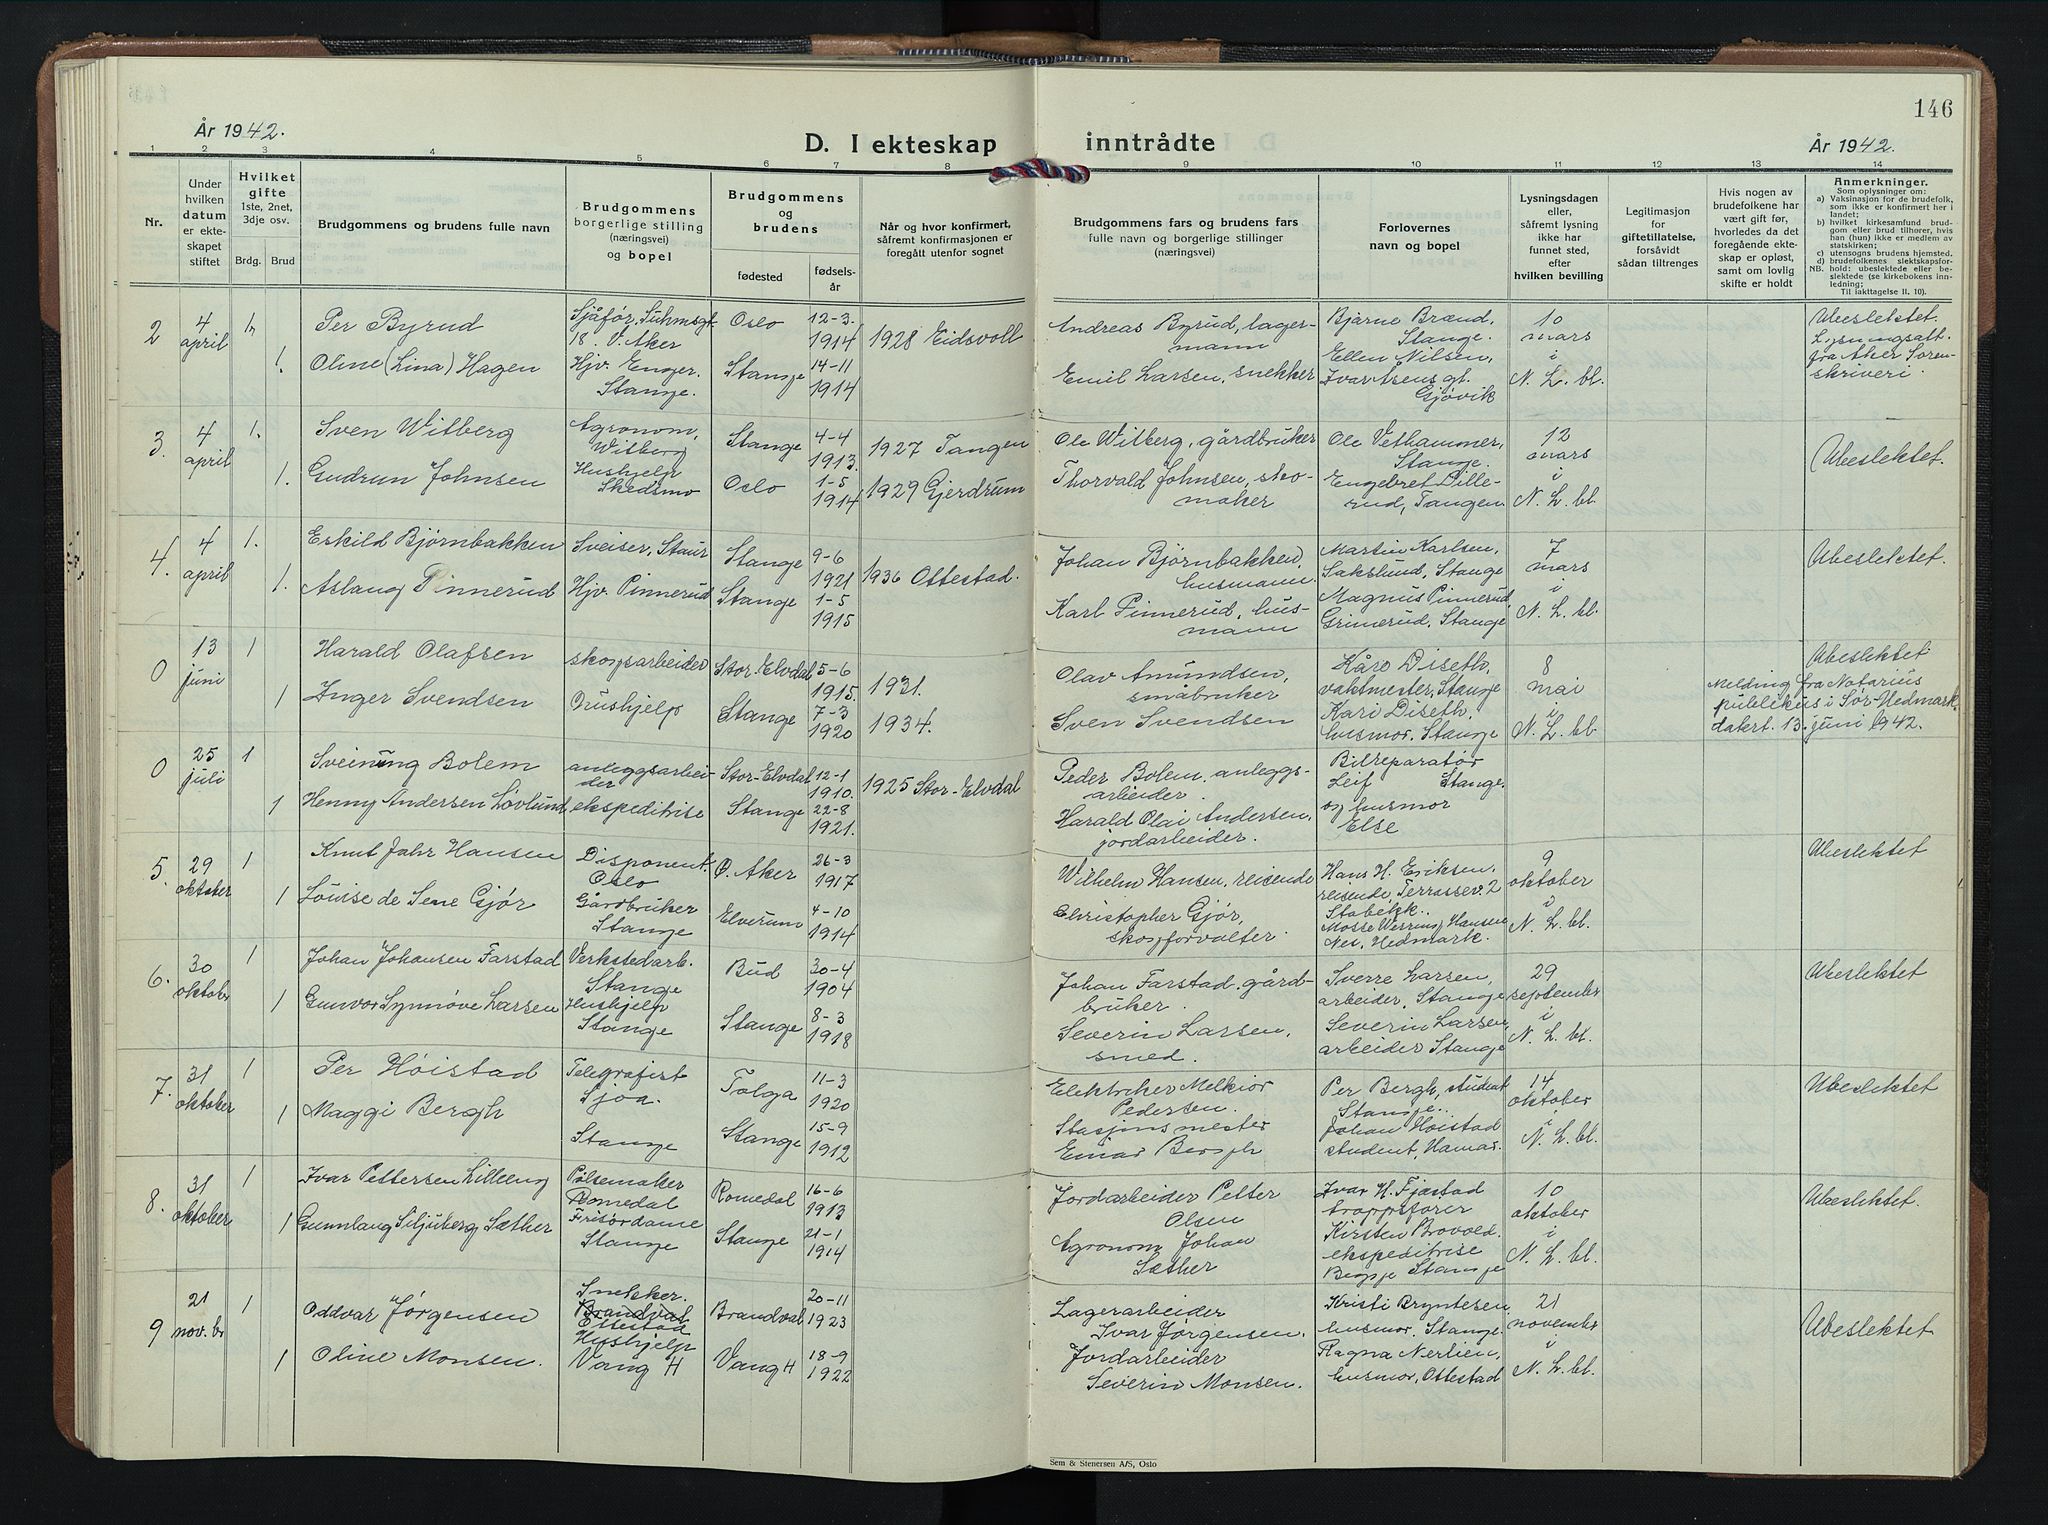 146
År 1942.
D. I ekteskap inntrådte
År 1942.
1 2 3 4 5 6 7 8 9 10 11 12 13 14
Nr.
Under hvilken datum er ekteskapet stiftet
Hvilket gifte 1ste, 2net, 3dje osv.
Brdg. Brud
Brudgommens og brudens fulle navn
Brudgommens borgerlige stilling (næringsvei) og bopel
Brudgommens og brudens
fødested
fødselsår
Når og hvor konfirmert, såfremt konfirmasjonen er foregått utenfor sognet
Brudgommens fars og brudens fars fulle navn og borgerlige stillinger (næringsvei)
Forlovernes navn og bopel
Lysningsdagen eller, såfremt lysning ikke har funnet sted, efter hvilken bevilling
Legitimasjon for giftetillatelse, forsåvidt sådan tiltrenges
Hvis nogen av brudefolkene har vært gift før, hvorledes da det foregående ekteskap er opløst, samt om lovlig skifte er holdt
Anmerkninger.
Som oplysninger om:
a) Vaksinasjon for de brudefolk, som ikke er konfirmert her i landet;
b) hvilket kirkesamfund brudgom eller brud tilhører, hvis han (hun) ikke er medlem av statskirken;
c) utensogns brudens hjemsted.
d) brudefolkenes slektskapsforhold: ubeslektede eller beslektede (se kirkebokens innledning;
NB. Til iakttagelse II. 10).
2 4 april 1. Per Byrud Sjåfør, Suhmsgt. 18. V. Aker Oslo 12-3. 1914 1928 Eidsvoll Andreas Byrud, lagermann Bjarne Brænd, Stange. 10 mars i N. L. bl. Ubeslektet. Lysningsatt. fra Aker Sorenskriveri.
1. Oline (Lina) Hagen Hjv. Enger. Stange. Stange 14-11 1914 Emil Larsen, snekker Ellen Nilsen, Ivar Åsens gt. Gjøvik
3. 4 april 1. Sven Witberg Agronom, Witberg Stange 4-4 1913. 1927 Tangen Ole Witberg, gårdbruker Ole Vethammer, Stange. 12 mars i N. L. bl. Ubeslektet.
1. Gudrun Johnsen Hushjelp Skedsmo Oslo 1-5 1914 1929 Gjerdrum Thorvald Johnsen, skomaker Engebret Dillerud, Tangen.
4. 4 april 1. Eskild Bjørnbakken Sveiser, Staur Stange 9-6 1921 1936 Ottestad. Johan Bjørnbakken, husmann. Martin Karlsen, Sakslund, Stange 7 mars i N. L. bl. Ubeslektet.
1. Aslaug Pinnerud Hjv. Pinnerud Stange 1-5 1915 Karl Pinnerud, husmann Magnus Pinnerud, Grinerud, Stange
0 13 juni 1 Harald Olafsen skogsarbeider Stor-Elvdal 5-6 1915. 1931. Olav Amundsen, småbruker Kåre Diseth, vaktmester, Stange 8 mai i N. L. bl. Ubeslektet
1 Inger Svendsen Hushjelp Stange 7-3 1920 1934. Sven Svendsen Kari Diseth, husmor. Stange Melding fra Notarius publikus i Sør-Hedmark datert. 13. juni 1942.
0 25 juli 1 Sveinung Bolem anleggsarbeider Stor-Elvdal 12-1 1910. 1925 Stor-Elvdal Peder Bolem, anleggsarbeider. Bilreparatør Leif Stange.
1 Henny Andersen Løvlund ekspeditrise Stange 22-8 1921. Harald Olai Andersen, jordarbeider. og husmor Else
5. 29 oktober 1 Knut Jahr Hansen Disponent. Oslo Ø. Aker 26-3 1917 Wilhelm Hansen, reisende Hans H. Eriksen, reisende, Terrassev. 2 Stabekk. 9 oktober i N. L. bl. Ubeslektet
1 Louise de Sene Gjør Gårdbruker Stange Elverum 4-10 1914 Christopher Gjør, skogforvalter. Mosse Werring Hansen Nes, Hedmark.
6. 30 oktober 1 Johan Johansen Farstad Verkstedarb. Stange Bud 30-4 1904 Johan Farstad, gårdbruker. Sverre Larsen, arbeider, Stange 29 september i N. L. bl. Ubeslektet
1 Gunvor Synnøve Larsen Hushjelp Stange Stange 8-3 1918 Severin Larsen, smed. Severin Larsen, arbeider Stange
7. 31 oktober 1 Per Høistad Telegrafist Sjoa. Tolga 11-3 1920 Elektriker Melkior Pedersen. Per Bergh, student Stange. 14 oktober i N. L. bl. Ubeslektet
1 Maggi Bergh Stange Stange 15-9 1912 Stasjonsmester Einar Bergh Johan Høistad student, Hamar.
8. 31 oktober 1 Ivar Pettersen Lilleeng Pølsemaker Romedal Romedal 16-6 1913 Jordarbeider Petter Olsen Ivar H. Fjæstad troppsfører 10 oktober i N. L. bl. Ubeslektet.
1 Gunnlaug Siljuberg Sæther Frisørdame Stange Stange 21-1 1914 Agronom Johan Sæther Kirsten Brovold, ekspeditrise Stange
9 21 nov. br 1 Oddvar Jørgensen Snekker. Brandval Ottestad Brandval 20-11 1923 Lagerarbeider Ivar Jørgensen. Kristi Bryntesen, husmor. Stange. 21 november i N. L. bl. Ubeslektet
1 Oline Monsen. Hushjelp Vang H Vang H 18-9 1922 Jordarbeider Severin Monsen. Ragna Nerlien, husmor, Ottestad
Sem & Stenersen A/S, Oslo